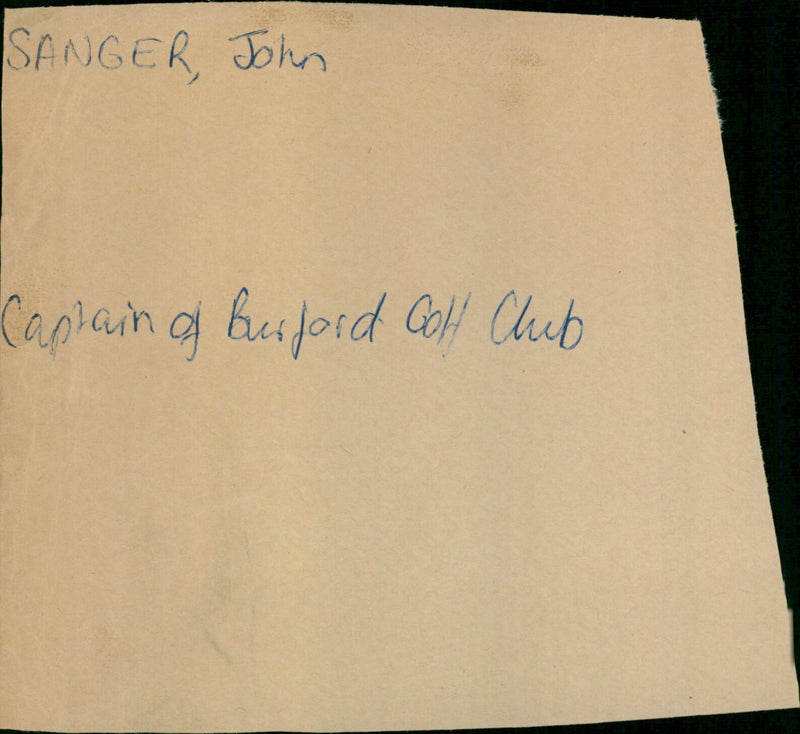 SANGER, John
Captain of Burford Golf Club